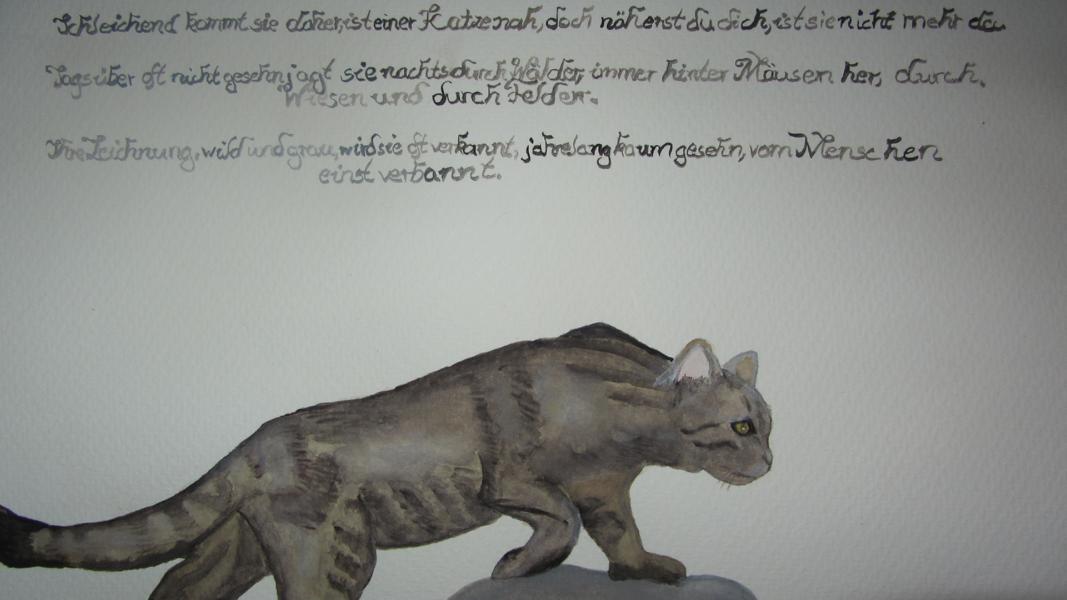 Schleichend kommt sie daher, ist einer Katze nah, doch näherst du dich, ist sie nicht mehr da
Tagsüber oft nicht gesehn jagt sie nachts durch Wälder, immer hinter Mäusen her, durch
Wiesen und durch Felder.
Ihre Zeichnung, wild und grau, wird sie oft verkannt, jahrelang kaum gesehn, vom Menschen
einst verbannt.